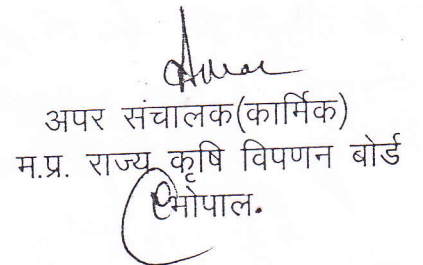 अपर संचालक(कार्मिक)
म.प्र. राज्य कृषि विपणन बोर्ड
भोपाल.